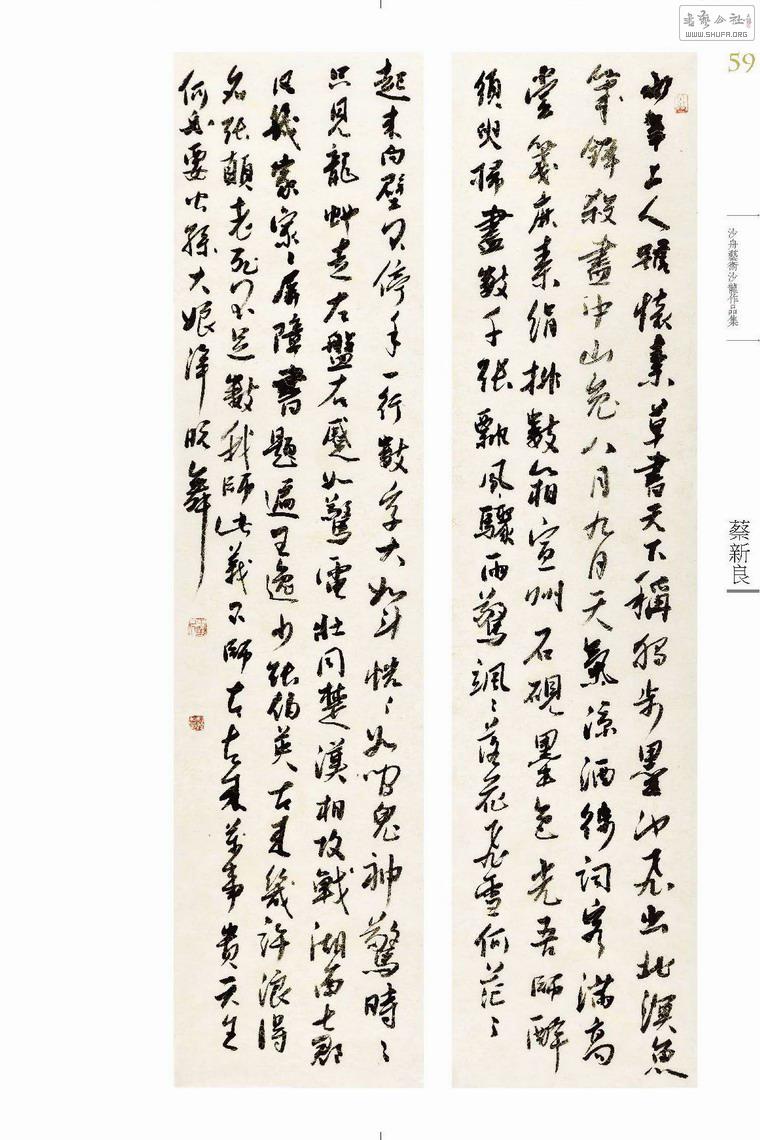 書藝公社
WWW.SHUFA.ORG
59
少年上人號懷素草書天下稱獨步墨池飛出北溟魚
筆鋒殺盡中山兔八月九月天氣涼酒徒詞客滿高
堂箋麻素絹排數箱宣州石硯墨色光吾師醉
須臾掃盡數千張飄風驟雨驚颯〻落花飛雪何茫〻
起來向壁不停手一行數字大如斗恍〻如聞鬼神驚時〻
只見龍蛇走左盤右蹙如驚電狀同楚漢相攻戰湖南七郡
凡幾家家〻屏障書題遍王逸少張伯英古來幾許浪得
名張顛老死不足數我師此義不師古古來萬事貴天生
何必要公孫大娘渾脫舞
沙舟藝術沙龍作品集
蔡新良